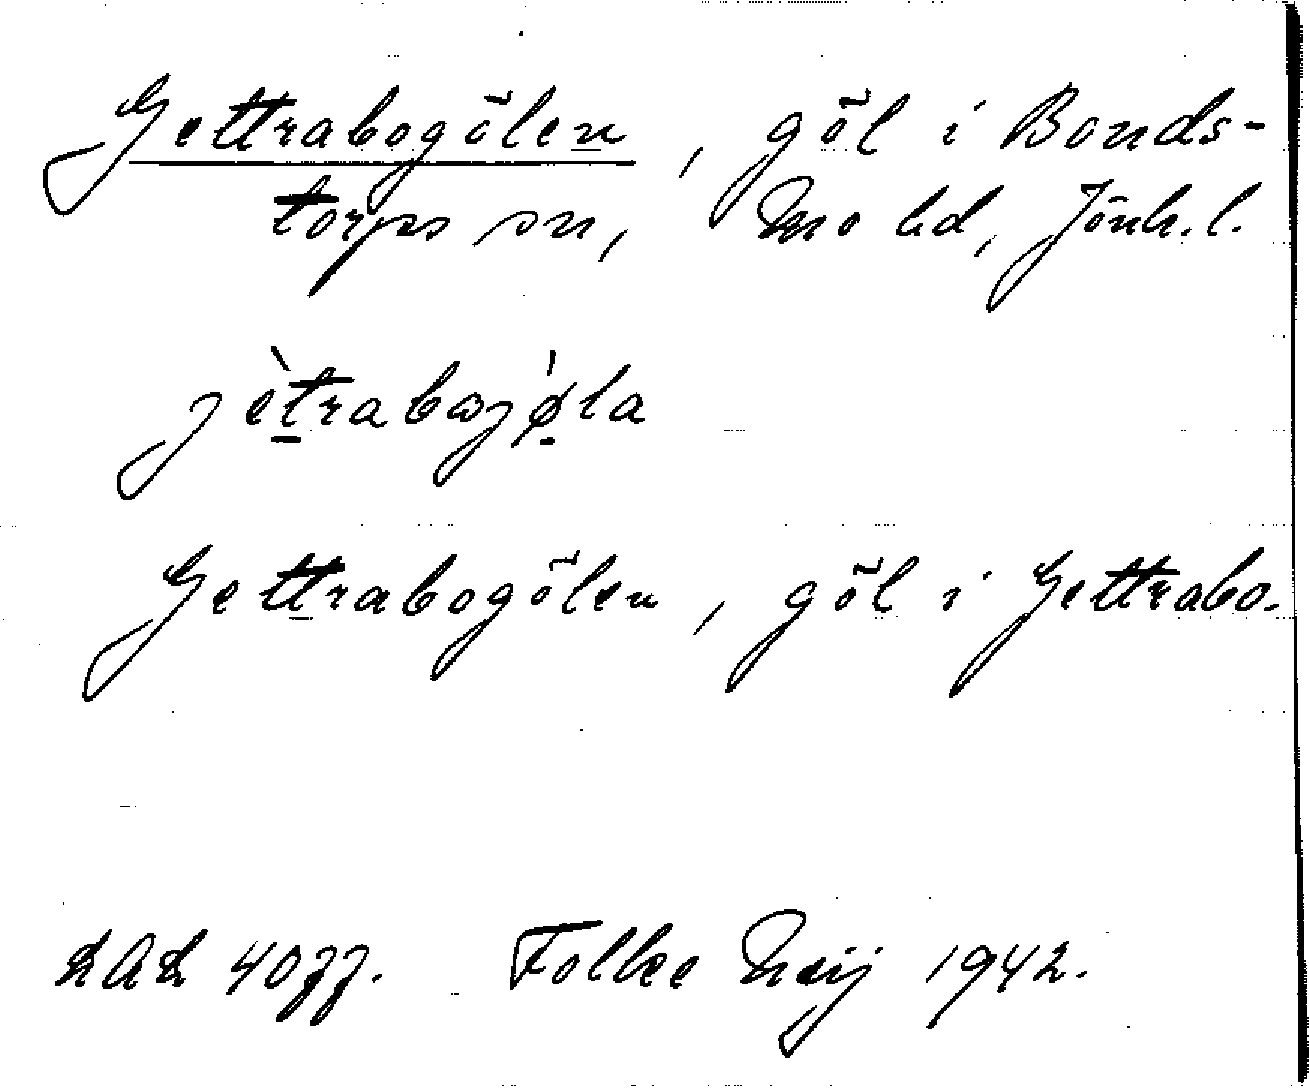 Gettrabogölen, göl i Bonds-
torps sn, Mo hd, Jönk. l.
jètrabωjǿ̱la
Gettrabogölen, göl i Gettrabo.
LAL 4077. Folke Neij 1942.